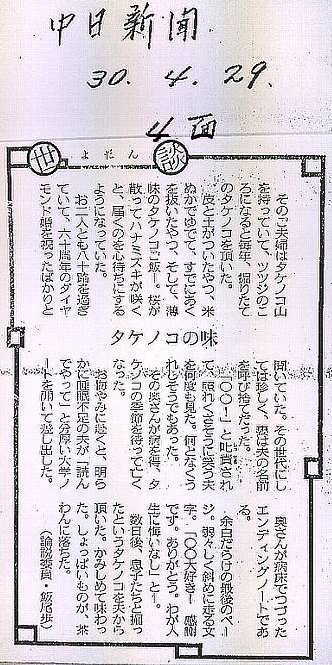 中日新聞
30. 4. 29.
4面
世談
よだん
タケノコの味
そのご夫婦はタケノコ山
を持っていて、ツツジのこ
ろになると毎年、掘りたて
のタケノコを頂いた。
皮と土がついたやつ、米
ぬかでゆでて、すでにあく
を抜いたやつ、そして、薄
味のタケノコご飯…。桜が
散ってハナミズキが咲く
と、届くのを心待ちにする
ようになっていた。
お二人とも八十路を過ぎ
ていて、六十周年のダイヤ
モンド婚を祝ったばかりと
聞いていた。その世代にし
ては珍しく、妻は夫の名前
を呼び捨てだった。
「〇〇！」と叱責され
て、照れくさそうに笑う夫
を何度も見た。何となくう
れしそうでもあった。
その奥さんが病を得、タ
ケノコの季節を待って亡く
なった。
お悔やみに赴くと、明ら
かに睡眠不足の夫が「読ん
でやって」と分厚い大学ノ
ートを開いて差し出した。
奥さんが病床でつづった
エンディングノートであ
る。
余白だらけの最後のペー
ジ。弱々しく斜めに走る文
字。「〇〇大好き！ 感謝
です。ありがとう。わが人
生に悔いなし」と－。
数日後、息子たちと掘っ
たというタケノコを夫から
頂いた。かみしめて味わっ
た。しょっぱいものが、茶
わんに落ちた。
（論説委員・飯尾歩）